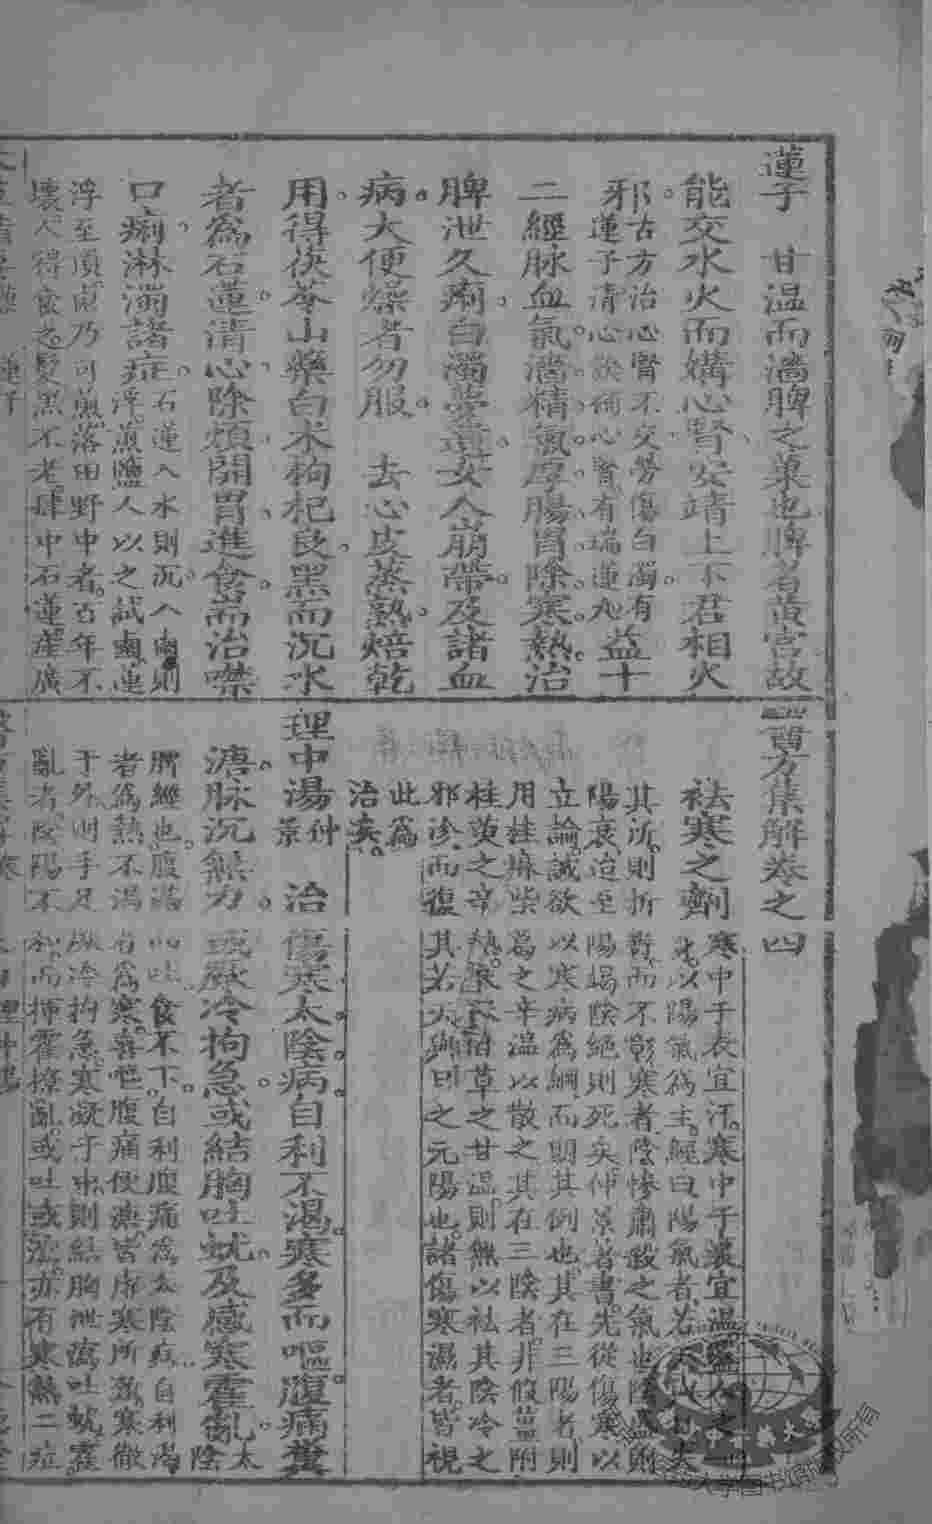 蓮子　甘溫而濇脾之菓也脾者黃宮故
能交水火而媾心腎安靖上下君相火
邪古方治心腎不交勞傷白濁有蓮子清心飲補心腎有瑞蓮丸益十
二經脉血氣濇精氣厚腸胃除寒熱治
脾泄久痢白濁夢遺女人崩帶及諸血
病大便燥者勿服　去心皮蒸熟焙乾
用得茯苓山藥白朮枸杞良黑而沉水
者為石蓮清心除煩開胃進食而治噤
口痢淋濁諸症石蓮入水則沉入鹵則浮煎鹽人以之試鹵蓮
浮至頂鹵乃可煎落田野中者百年不
壞人得食之髮黑不老肆中石蓮產廣
醫方集解卷之四
祛寒之劑
寒中于表宜汗寒中于裏宜溫
以陽氣為主經曰陽氣者若天與日失
其所則折壽而不彰寒者陰慘肅殺之氣也陰盛則
陽衰迨至陽竭陰絕則死矣仲景著書先從傷寒以
立論誠欲以寒病為綱而明其例也其在三陽者則
用桂麻柴葛之辛溫以散之其在三陰者非假薑附
桂萸之辛熱參朮甘草之甘溫則無以祛其陰冷之
邪沴而復其若天與日之元陽也諸傷寒濕者皆視
此為
治矣
理中湯仲景　治傷寒太陰病自利不渴寒多而嘔腹痛糞
溏脉沉無力或厥冷拘急或結胸吐蚘及感寒霍亂太陰
脾經也腹滿而吐食不下自利腹痛為太陰病自利渴
者為熱不渴者為寒喜嘔腹痛便溏皆虛寒所致寒徹
于外則手足厥冷拘急寒凝于中則結胸泄瀉吐蚘霍
亂者陰陽不和而揮霍撩亂或吐或瀉亦有寒熱二症